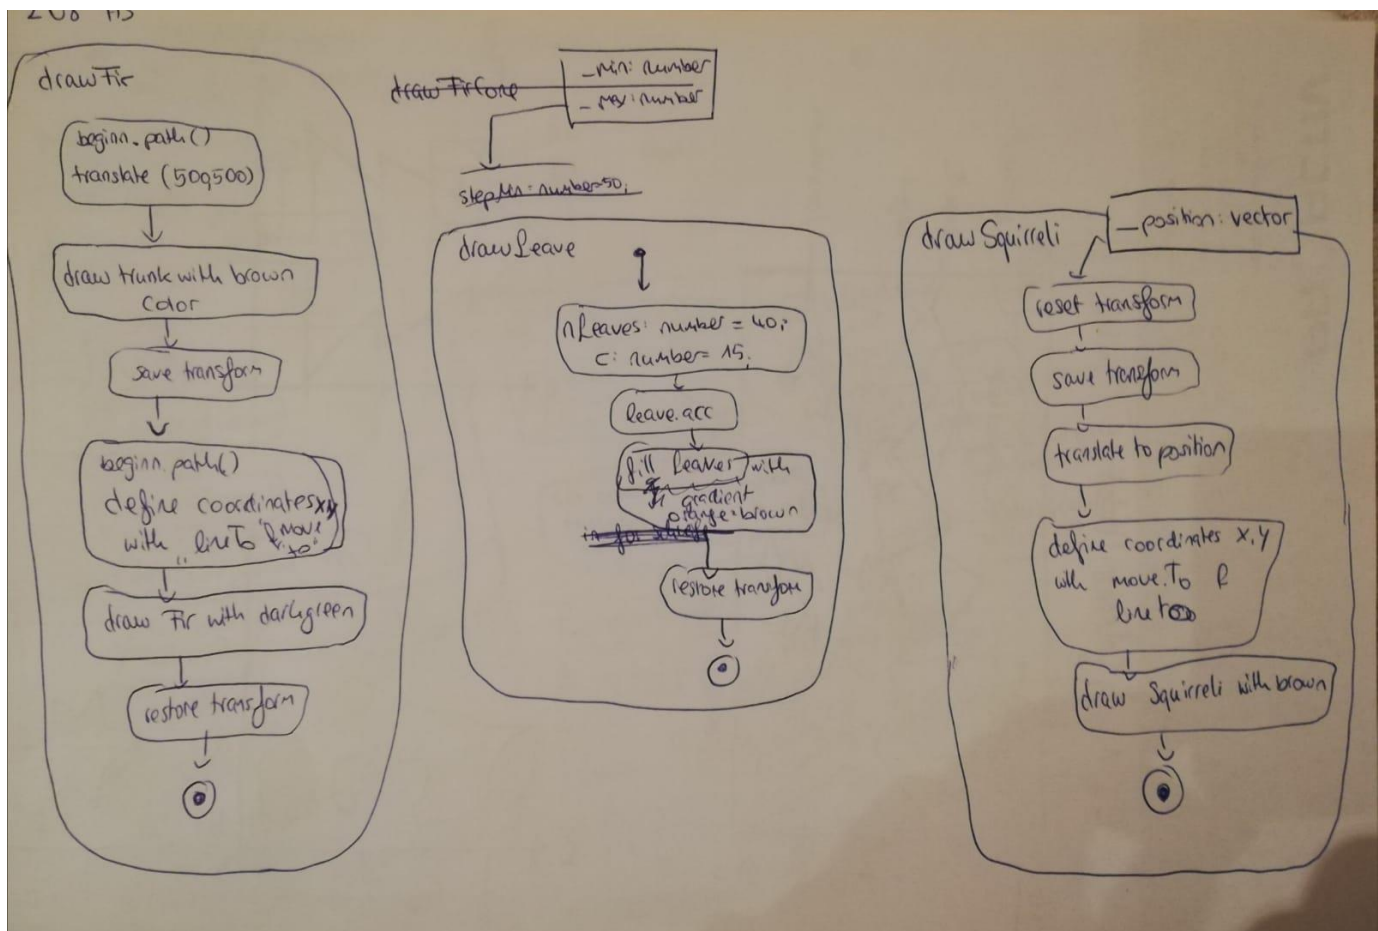 drawFir
beginn.path()
translate (500,500)
draw trunk with brown
color
save transform
beginn.path()
define coordinates x,y
with "lineTo" & "move
to"
draw Fir with darkgreen
restore transform
drawFirCone
_min: number
_max: number
stepMin: number=50;
drawLeave
nLeaves: number = 40;
c: number = 15;
leave.arc
fill leaves with
gradient
orange-brown
restore transform
drawSquirreli
_position: vector
reset transform
save transform
translate to position
define coordinates x,y
with move.To &
lineTo
draw Squirreli with brown